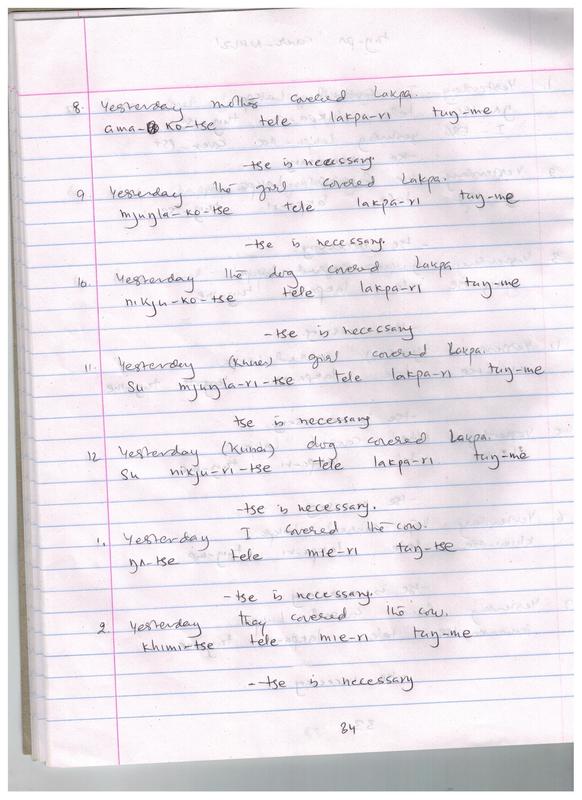 8. Yesterday mother covered Lakpa.
ama-ko-tse tele lakpa-rI tuŋ-me
-tse is necessary.
9. Yesterday the girl covered Lakpa.
mjuŋla-ko-tse tele lakpa-rI tuŋ-me
-tse is necessary.
10. Yesterday the dog covered Lakpa
nikju-ko-tse tele lakpa-rI tuŋ-me
-tse is necessary
11. Yesterday girl covered Lakpa.
su mjuŋla-rI-tse tele lakpa-rI tuŋ-me
tse is necessary
12 Yesterday dog covered Lakpa.
su nikju-rI-tse tele lakpa-rI tuŋ-me
-tse is necessary.
1. Yesterday I covered the cow.
ŋʌ-tse tele mie-rI tuŋ-tse
-tse is necessary.
2. Yesterday they covered the cow.
khimi-tse tele mie-rI tuŋ-me
-tse is necessary
34